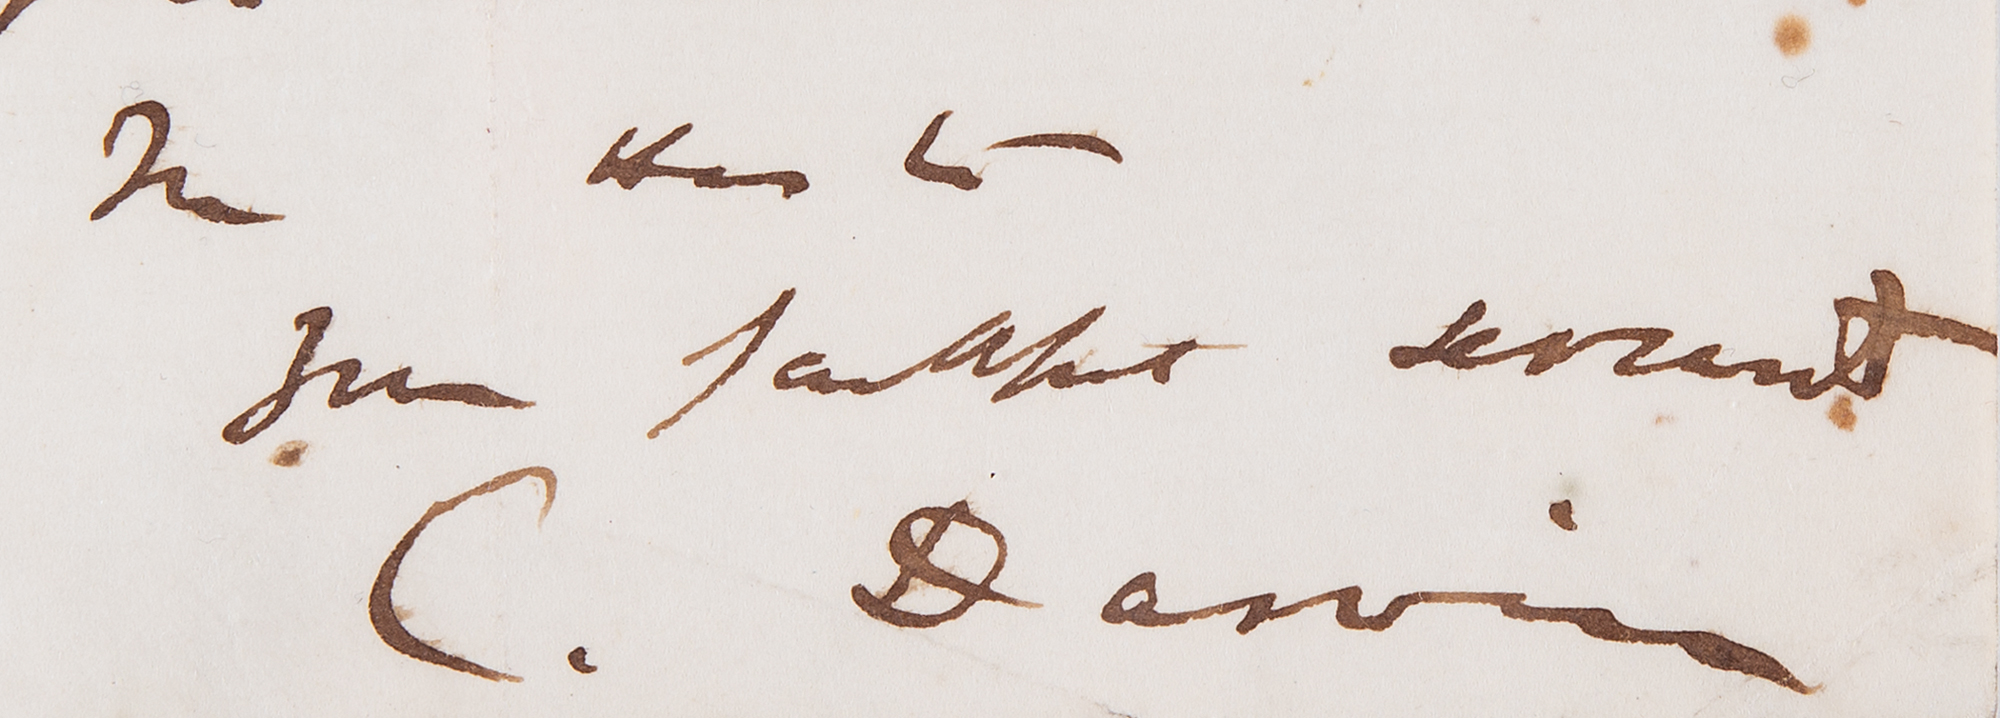 In Haste
your faithful servant
C. Darwin